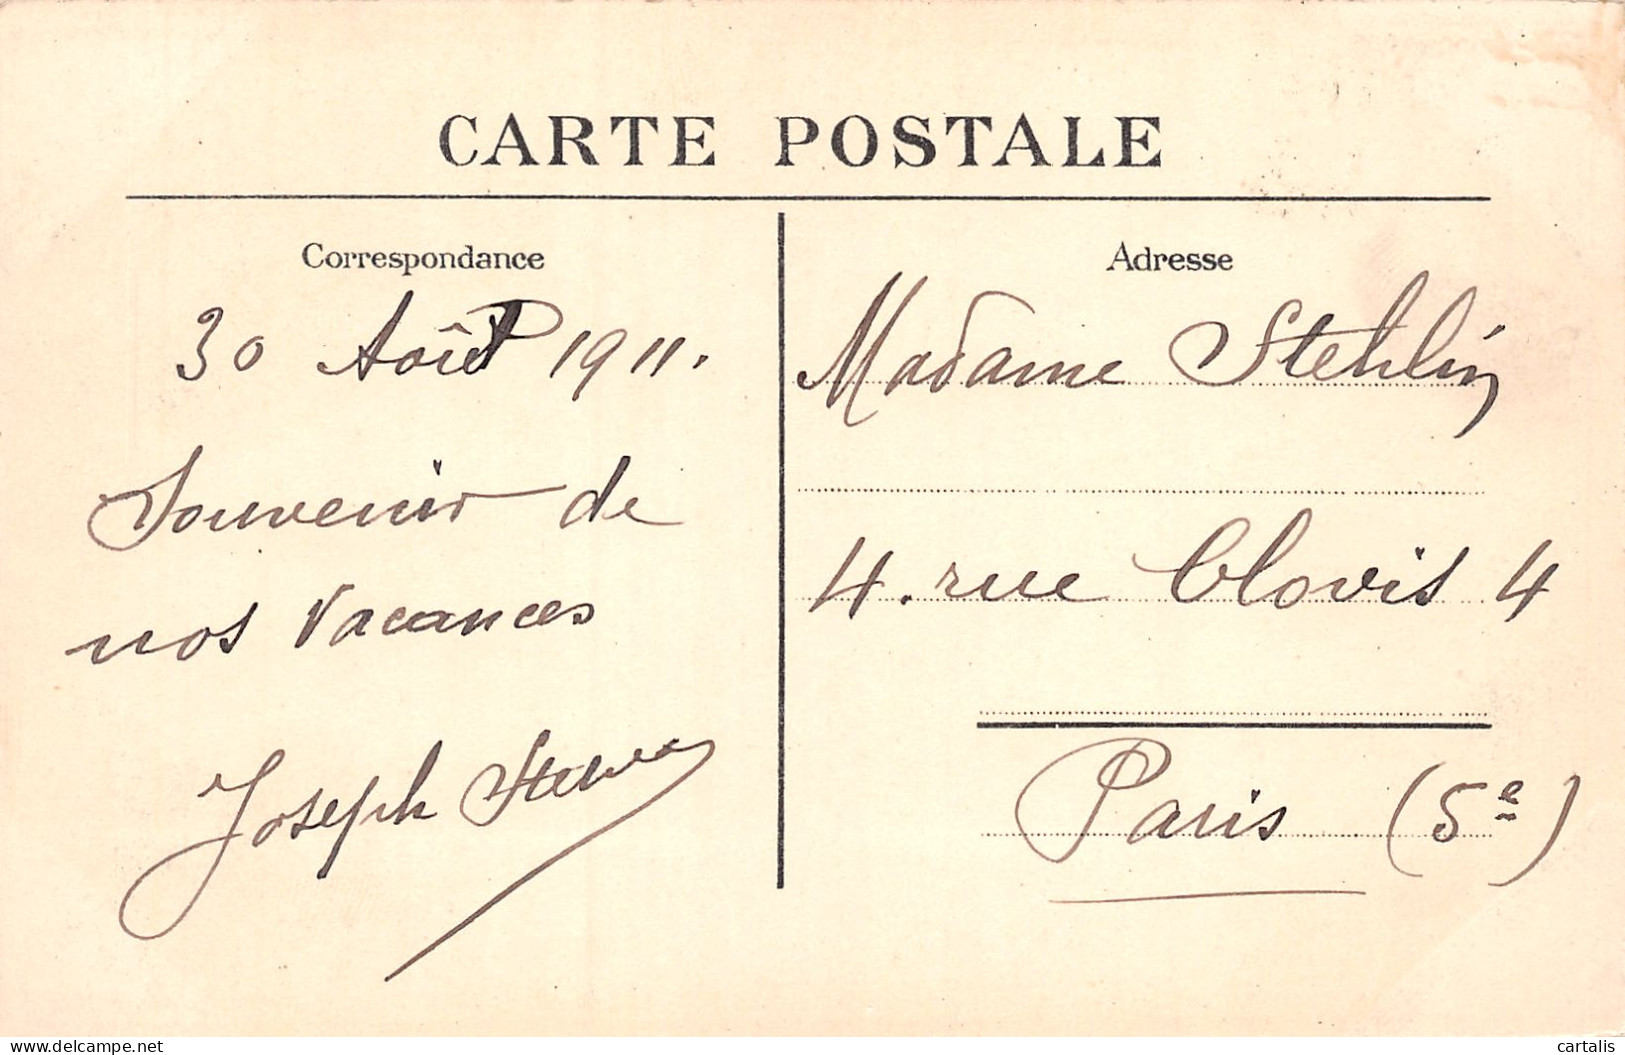 CARTE POSTALE
Correspondance
30 Août 1911.
Souvenir de
nos Vacances
Joseph
Adresse
Madame Stehlin
4. rue Clovis 4
Paris (5e)
cartalis
delcampe.net